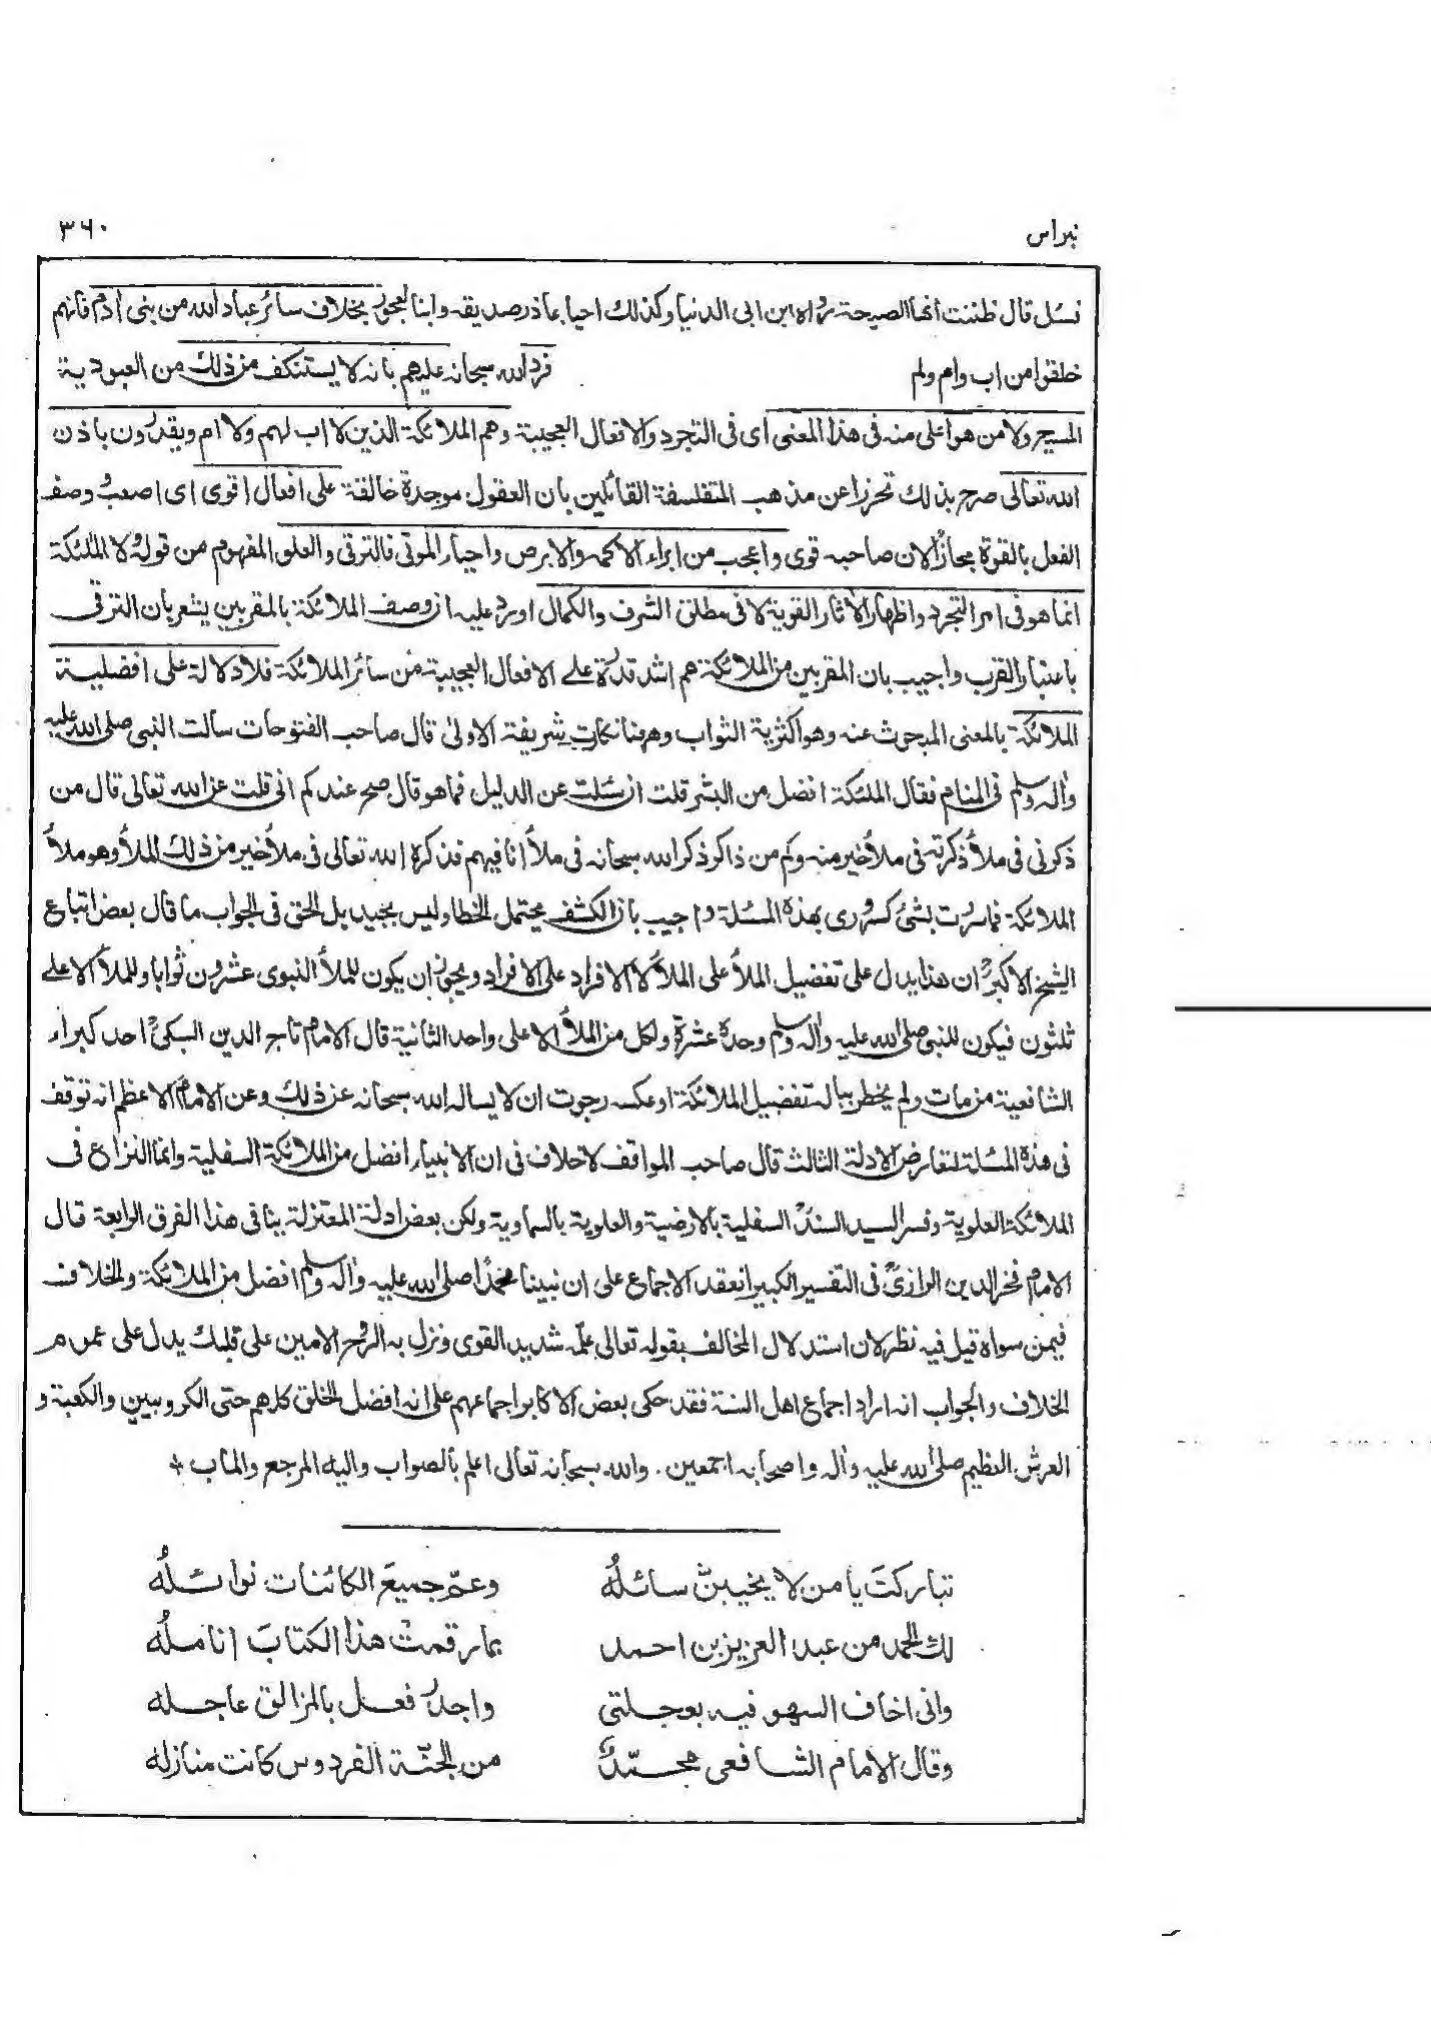 نبراس
٣٦٠
نسئل قال ظننت انها الصيحة رواه ابن ابي الدنيا وكذلك احيا عاذر صديقه وابنا لعجوز بخلاف سائر عباد الله من بنى ادم فانهم
خلقوا من اب وام ولم فرد الله سبحانه عليهم بانه لا يستنكف من ذلك من العبودية
المسيح ولا من هو اعلى منه فى هذا المعنى اى فى التجرد والافعال العجيبة وهم الملائكة الذين لا اب لهم ولا ام ويقدرون باذن
الله تعالى صرح بذلك تحرزا عن مذهب المتفلسفة القائلين بان العقول موجدة خالقة على افعال اقوى اى اصعب وصف
الفعل بالقوة مجازا لان صاحبه قوى واعجب من ابراء الاكمه والابرص واحياء الموتى فالترقى والعلو المفهوم من قوله ولا الملئكة
انما هو فى امر التجرد واظهار الأثار القوية لا فى مطلق الشرف والكمال اورد عليه ان وصف الملائكة بالمقربين يشعر بان الترقى
باعتبار القرب واجيب بان المقربين من الملائكة هم اشد قدرة على الافعال العجيبة من سائر الملائكة فلا دلالة على افضلية
الملائكة بالمعنى المبحوث عنه وهو اكثرية الثواب وههنا نكات شريفة الاولى قال صاحب الفتوحات سالت النبى صلى الله عليه
واله وسلم فى المنام فقال الملئكة افضل من البشر قلت ان سئلت عن الدليل فما هو قال صح عندكم انى قلت عن الله تعالى قال من
ذكرنى فى ملأ ذكرته فى ملأ خير منه وكم من ذاكر ذكر الله سبحانه فى ملأ انا فيهم فذكره الله تعالى فى ملأ خير من ذلك الملأ وهو ملأ
الملائكة فما سررت بشئ كسرورى بهذه المسئلة واجيب بان الكشف يحتمل الخطأ وليس بجيد بل الحق فى الجواب ما قال بعض اتباع
الشيخ الاكبر ان هذا يدل على تفضيل الملأ على الملأ لا الافراد على الافراد ويجوز ان يكون للملأ النبوى عشرون ثوابا وللملأ الاعلى
ثلثون فيكون للنبى صلى الله عليه واله وسلم وحده عشرة ولكل من الملأ الاعلى واحد الثانية قال الامام تاج الدين السبكى احد كبراء
الشافعية من مات ولم يخطر بباله تفضيل الملائكة او عكسه رجوت ان لا يساله الله سبحانه عن ذلك وعن الامام الاعظم انه توقف
فى هذه المسئلة لتعارض الادلة الثالث قال صاحب المواقف لا خلاف فى ان الانبياء افضل من الملائكة السفلية وانما النزاع فى
الملائكة العلوية وفسر السيد السند السفلية بالارضية والعلوية بالسماوية ولكن بعض ادلة المعتزلة ينافى هذا الفرق الرابعة قال
الامام فخر الدين الرازى فى التفسير الكبير انعقد الاجماع على ان نبينا محمدا صلى الله عليه واله وسلم افضل من الملائكة والخلاف
فيمن سواه قيل فيه نظر لان استدلال المخالف بقوله تعالى علمه شديد القوى ونزل به الروح الامين على قلبك يدل على عموم
الخلاف والجواب انه اراد اجماع اهل السنة فقد حكى بعض الاكابر اجماعهم على انه افضل الخلق كلهم حتى الكروبيين والكعبة و
العرش العظيم صلى الله عليه واله واصحابه اجمعين. والله سبحانه تعالى اعلم بالصواب واليه المرجع والماب *
تباركتَ يا من لا يخيبنّ سائلُه وعمّ جميعَ الكائنات نوائلُه
لك الحمد من عبد العزيز بن احمد بما رقمتْ هذا الكتابَ اناملُه
وانى اخاف السهو فيه بعجلتى واجدر فعل بالمزالق عاجله
وقال الامام الشافعى محمدٌ من الجنّة الفردوس كانت منازله